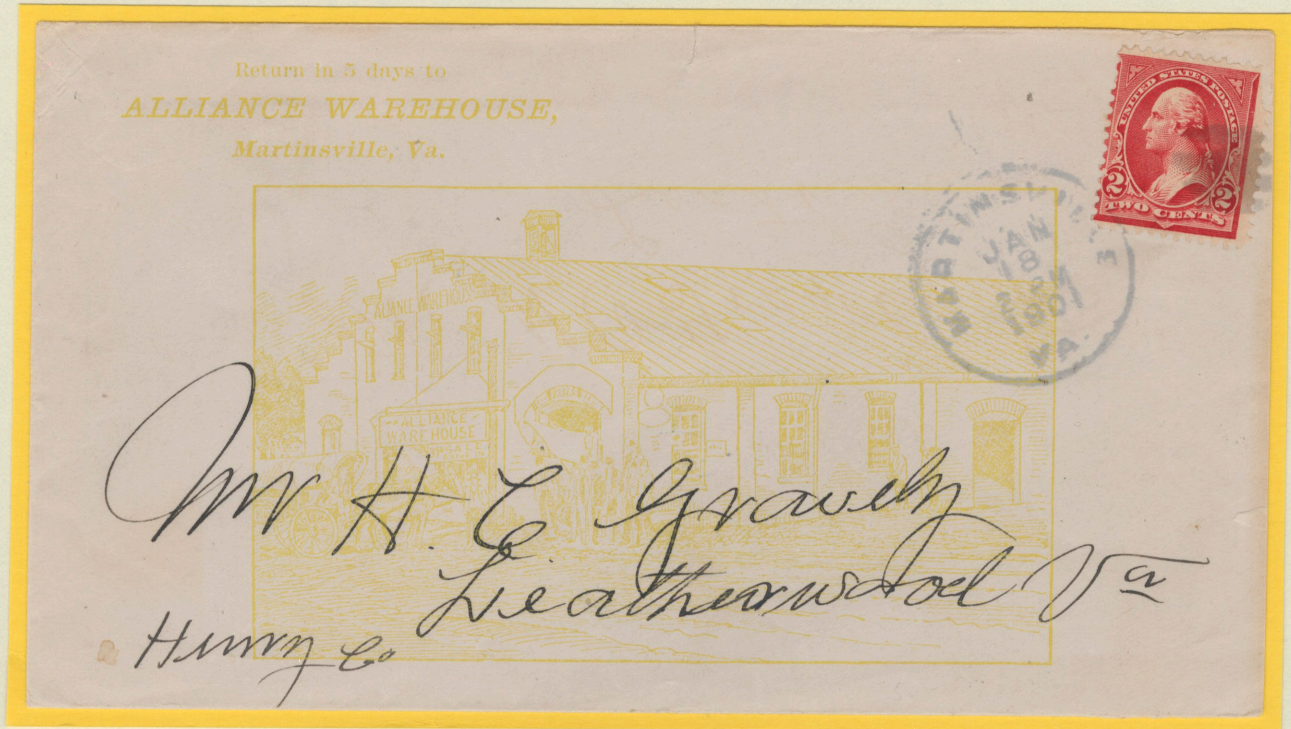 Return in 5 days to
ALLIANCE WAREHOUSE,
Martinsville, Va.
UNITED STATES POSTAGE
2 2
TWO CENTS
MARTINSVILLE
JAN
18
2 PM
1901
VA.
ALLIANCE WAREHOUSE
ALLIANCE
WAREHOUSE
Mr H. C Gravely
Leatherwood Va
Henry Co